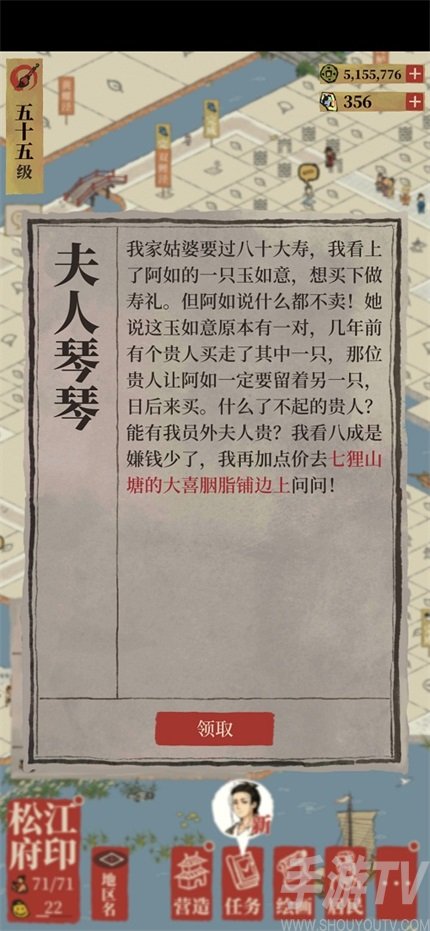 五十五级
5,155,776
356
夫人琴琴
我家姑婆要过八十大寿，我看上
了阿如的一只玉如意，想买下做
寿礼。但阿如说什么都不卖！她
说这玉如意原本有一对，几年前
有个贵人买走了其中一只，那位
贵人让阿如一定要留着另一只，
日后来买。什么了不起的贵人？
能有我员外夫人贵？我看八成是
嫌钱少了，我再加点价去七狸山
塘的大喜胭脂铺边上问问！
领取
松江
府印
71/71
22
地区名
新
营造
任务
手游TV
WWW.SHOUYOUTV.COM